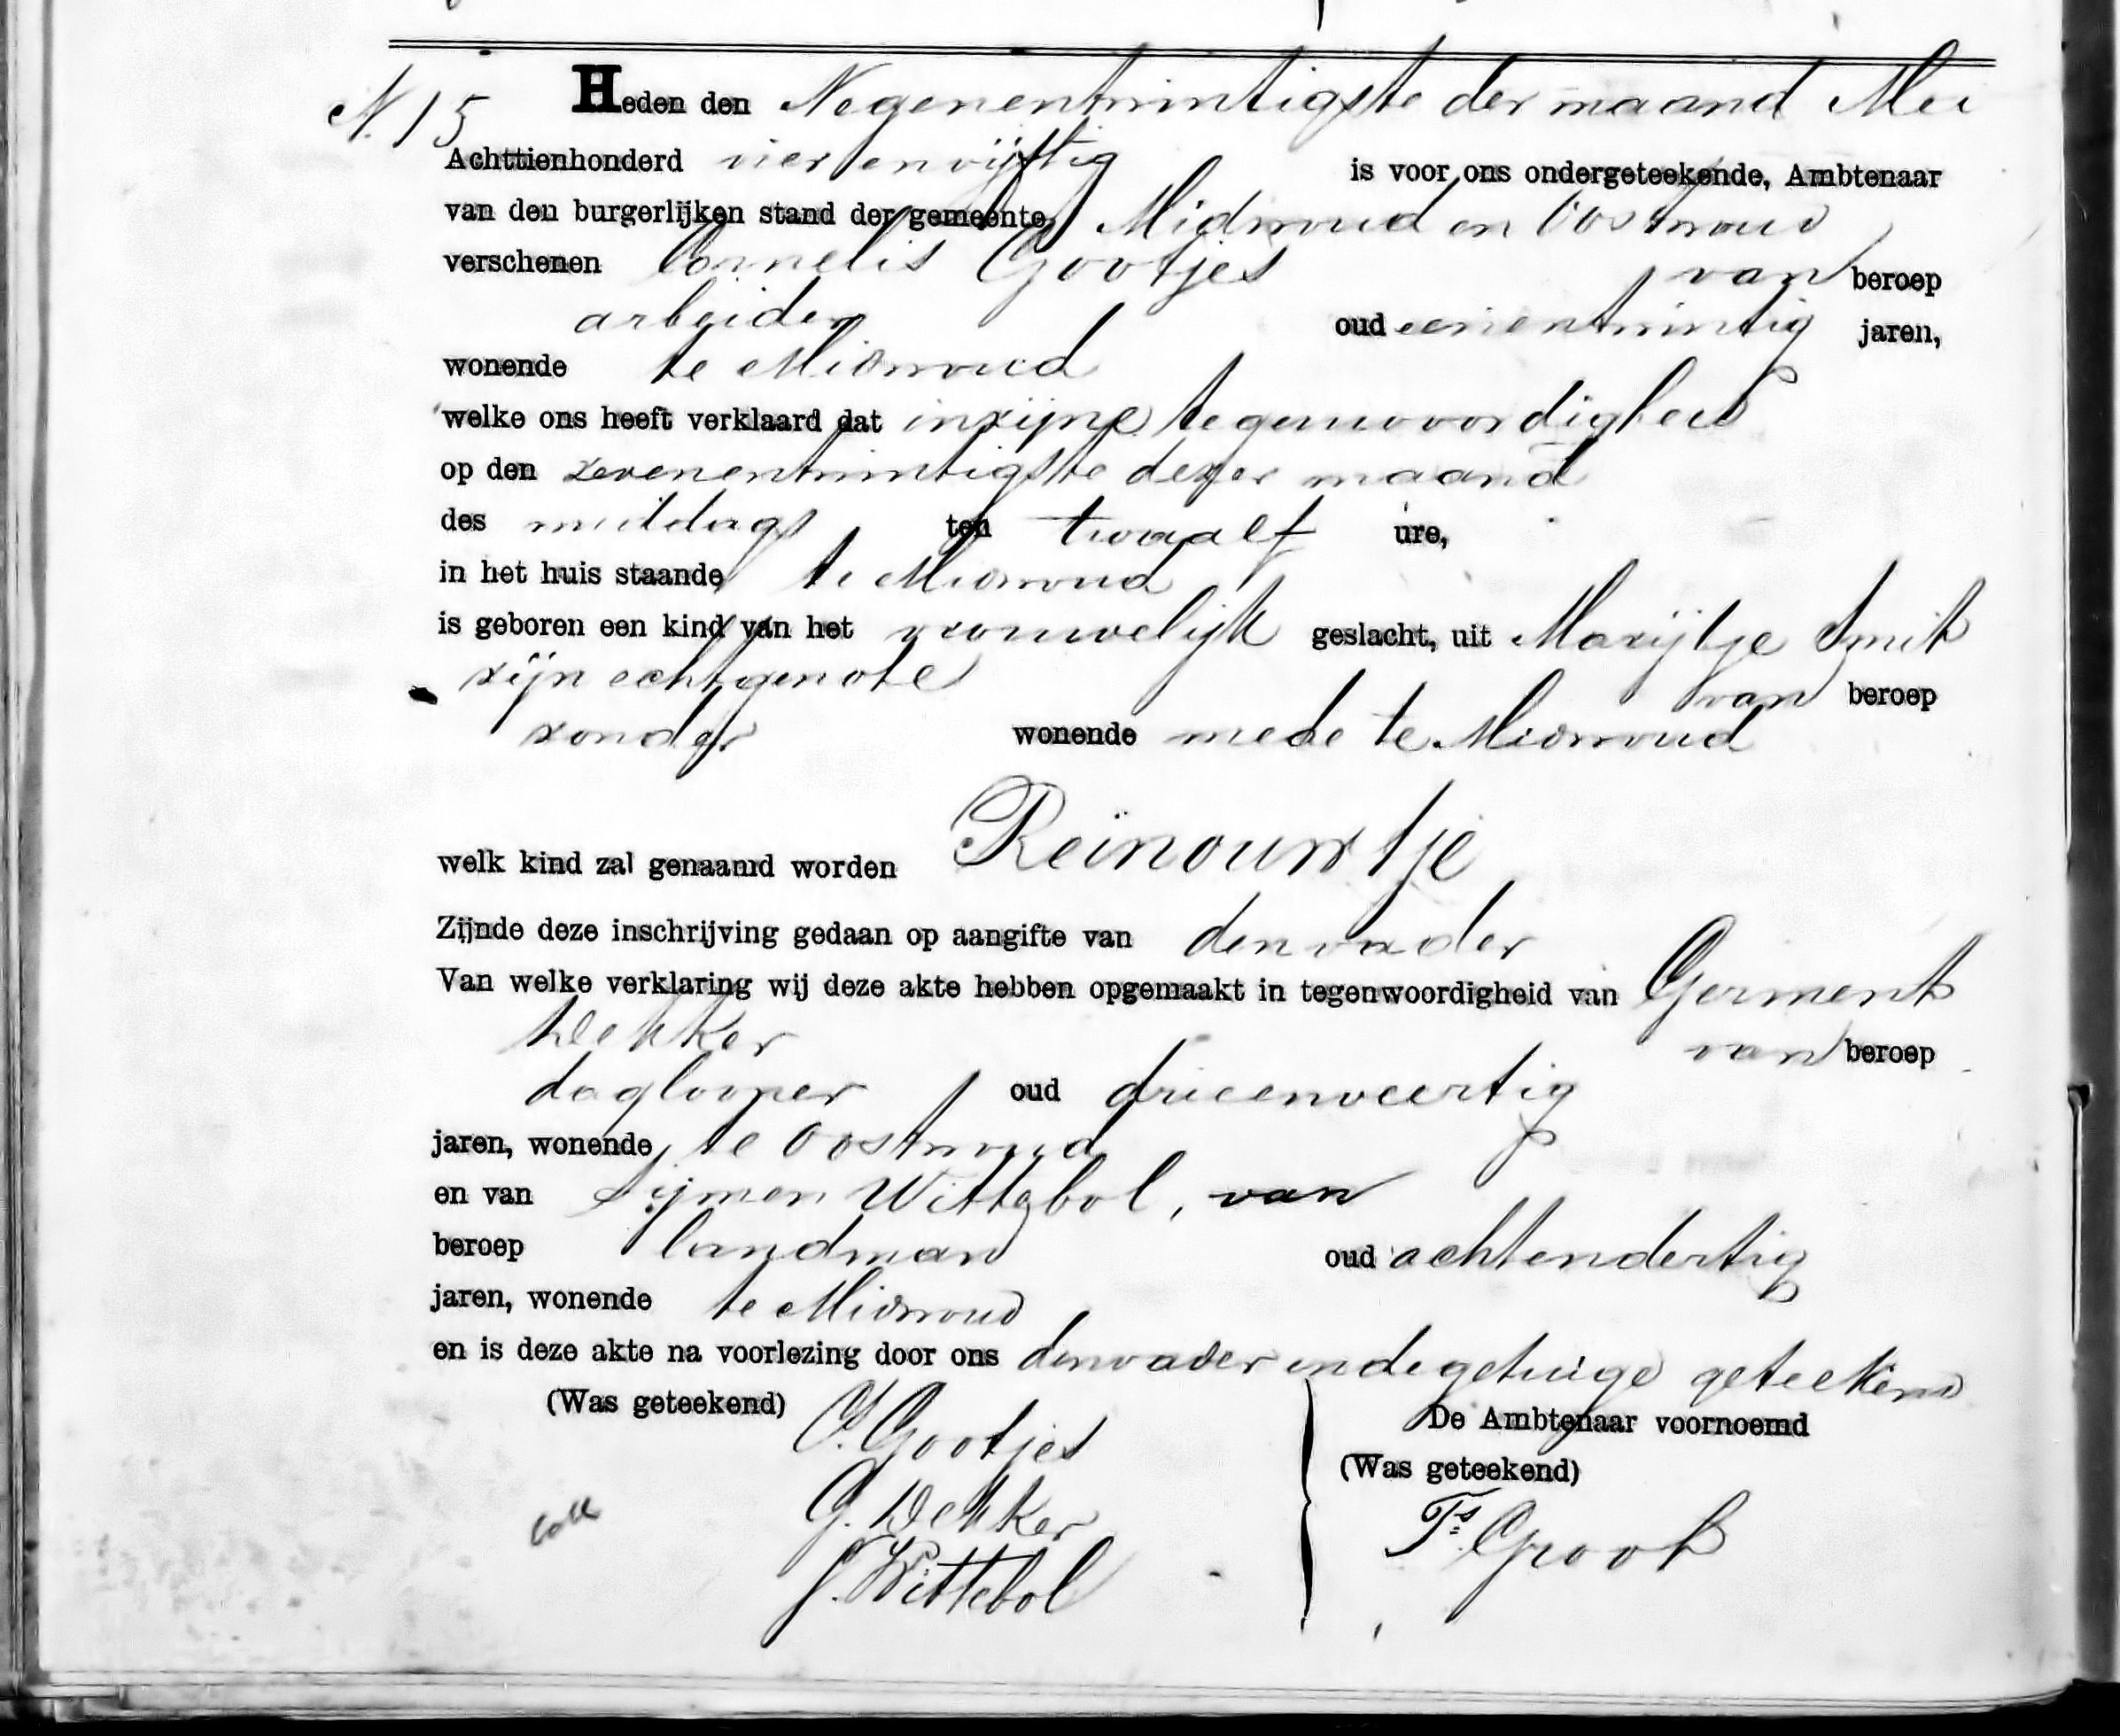 N. 15 Heden den Negenentwintigste der maand Mei
Achttienhonderd vier en vijftig is voor ons ondergeteekende, Ambtenaar
van den burgerlijken stand der gemeente Midwoud en Oostwoud
verschenen Cornelis Gootjes van beroep
arbeider oud eenentwintig jaren,
wonende te Midwoud
welke ons heeft verklaard dat in zijne tegenwoordigheid
op den zevenentwintigste dezer maand
des middags ten twaalf ure,
in het huis staande te Midwoud
is geboren een kind van het vrouwelijk geslacht, uit Marijtje Smit
zijn echtgenote van beroep
zonder wonende mede te Midwoud
welk kind zal genaamd worden Reinouwtje
Zijnde deze inschrijving gedaan op aangifte van den vader
Van welke verklaring wij deze akte hebben opgemaakt in tegenwoordigheid van Germent
Dekker van beroep
daglooner oud drieenveertig
jaren, wonende te Oostwoud
en van Sijmen Wittebol, van
beroep landman oud achtendertig
jaren, wonende te Midwoud
en is deze akte na voorlezing door ons den vader en de getuige geteekend
(Was geteekend) C. Gootjes
De Ambtenaar voornoemd
G. Dekker
(Was geteekend)
S. Wittebol
Ts. Groot